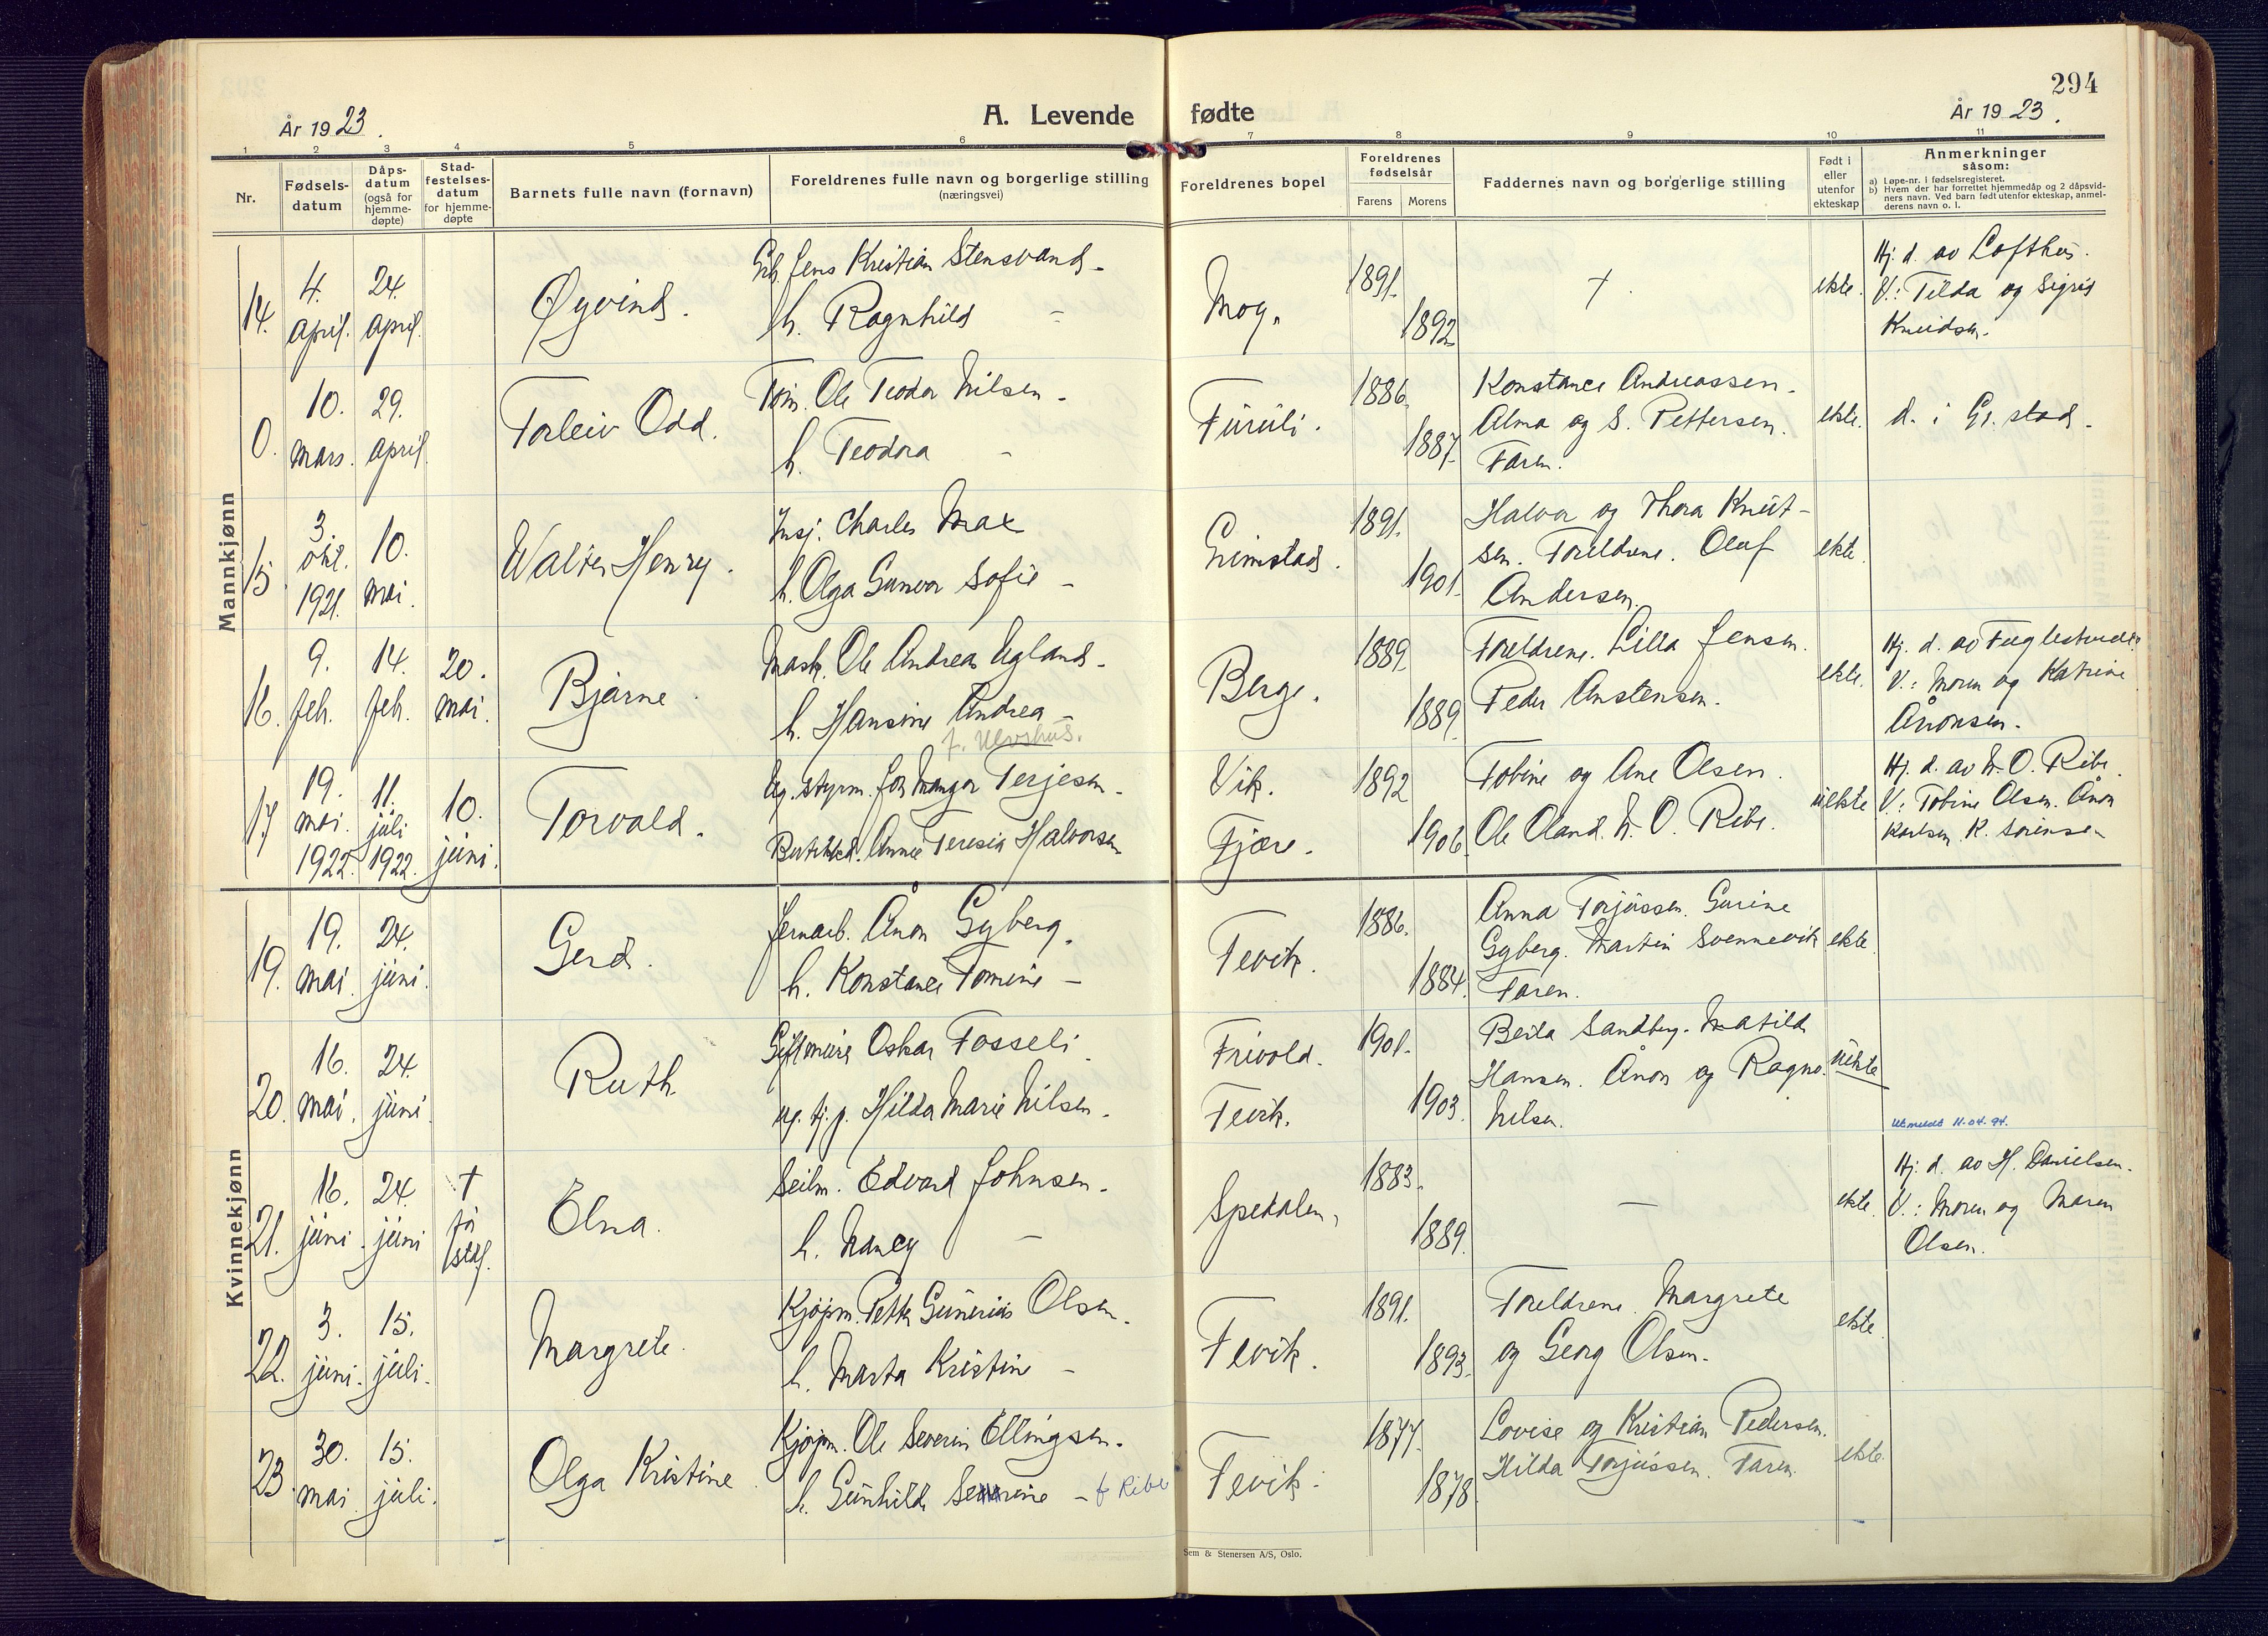 294
År 1923.
A. Levende fødte
År 1923.
1 2 3 4 5 6 7 8 9 10 11
Nr.
Fødsels-
datum
Dåps-
datum
(også for
hjemme-
døpte)
Stad-
festelses-
datum
for hjemme-
døpte
Barnets fulle navn (fornavn)
Foreldrenes fulle navn og borgerlige stilling
(næringsvei)
Foreldrenes bopel
Foreldrenes
fødselsår
Farens Morens
Faddernes navn og borgerlige stilling
Født i
eller
utenfor
ekteskap
Anmerkninger
såsom:
a) Løpe-nr. i fødselsregisteret.
b) Hvem der har forrettet hjemmedåp og 2 dåpsvid-
ners navn. Ved barn født utenfor ekteskap, anmel-
derens navn o. l.
Mannkjønn
14.
4.
april.
24.
april.
Øyvind.
Jens Kristian Stensvand.
h. Ragnhild -
Moy.
1891.
1892
+
ekte.
Hj. d. av Lofthus.
V.: Tilda og Sigrid
Knudsen.
0.
10.
mars.
29.
april.
Torleiv Odd.
Tøm. Ole Teodor Nilsen.
h. Teodora -
Furuli.
1886.
1887.
Konstance Andreassen.
Alma og S. Pettersen.
Faren.
ekte.
d. i Gr.stad.
15.
3.
okt.
1921.
10.
mai.
Walter Henry.
Insj. Charles Max
h. Olga Gunvor Sofie -
Grimstad.
1891.
1901.
Halvor og Thora Knut-
sen. Foreldrene. Oluf
Andersen.
ekte.
16.
9.
feb.
14.
feb.
20.
mai.
Bjarne.
Mask. Ole Andreas Ugland.
h. Hansine Andrea -
f. Ulvshus.
Berge.
1889.
1889.
Foreldrene. Lilla Jensen.
Peder Anstensen.
ekte.
Hj. d. av Fuglestvedt.
V.: Moren og Katrine
Ånonsen.
17.
19.
mai.
1922.
11.
juli
1922.
10.
juni.
Torvald.
Ug. styrm. Terjesen.
Anne Teresia Halvorsen
Vik.
Fjære.
1892
1906.
Tobine og Ane Olsen.
Ole Oland. N. O. Ribe.
uekte
Hj. d. av N. O. Ribe.
V.: Tobine Olsen. Ånon
Karlsen. K. Sørensen
Kvinnekjønn
19.
19.
mai.
24.
juni.
Gerd.
Jernarb. Ånon Gyberg.
h. Konstance Tomine -
Fevik.
1886.
1884.
Anna Torjussen. Gurine
Gyberg. Martin Svennevik
Faren.
ekte.
20.
16.
mai.
24.
juni.
Ruth.
Oskar Fosseli.
ug. tj.p. Hilda Marie Nilsen.
Frivold.
Fevik.
1901.
1903.
Berta Sandberg. Matilde
Hansen. Ånon og Ragna.
Nilsen.
uekte
Utmeldt 11.04.94.
21.
16.
juni.
24.
juni
+
før
staf.
Elna.
Seilm. Edvard Johnsen.
h. Nancy -
Spedalen,
1883.
1889.
—
ekte.
Hj. d. av H. Danielsen.
V.: Moren og Maren
Olsen.
22.
3.
juni.
15.
juli.
Margrete.
Kjøpm. Petter Gunerius Olsen.
h. Marta Kristine -
Fevik.
1891.
1893.
Foreldrene. Margrete
og Georg Olsen.
ekte.
23.
30.
mai
15.
juli.
Olga Kristine
Kjøpm. Ole Severin Ellingsen.
h. Gunhild - f Ribe
Fevik.
1877.
1878.
Lovise og Kristian Pedersen.
Hilda Torjussen. Faren.
ekte.
Sem & Stenersen A/S, Oslo.